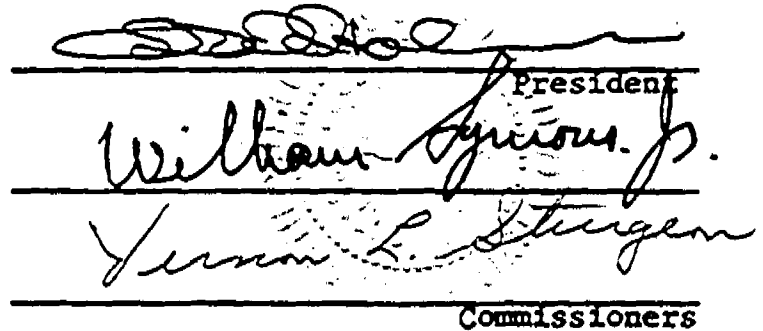 President
William Symons. Jr.
Vernon L. Sturgeon
Commissioners